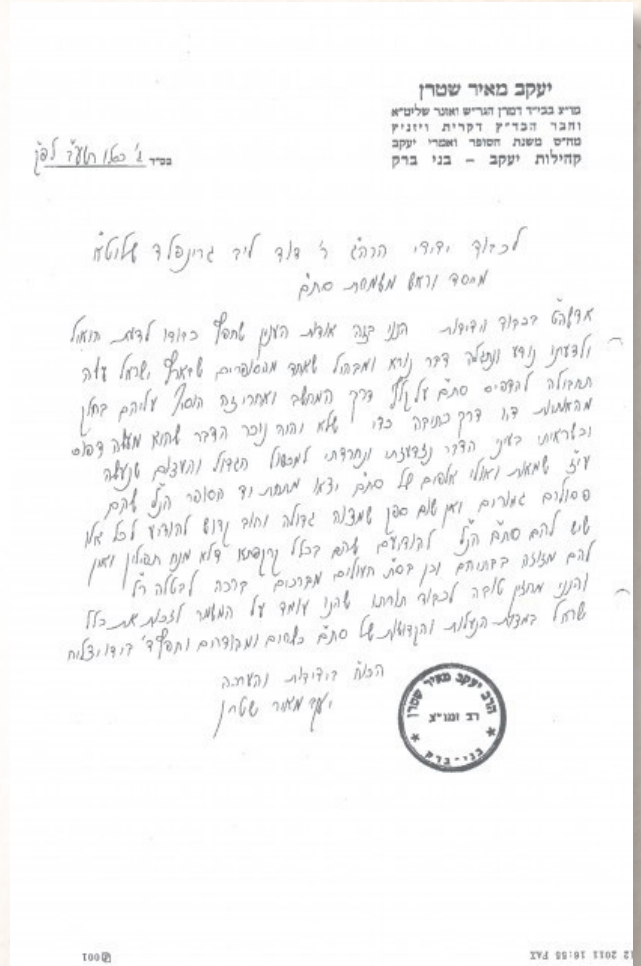 יעקב מאיר שטרן
מו״צ בביד״ד דמרן הגר״ש ואזנר שליט״א
וחבר הבד״ץ דקרית ויזניץ
מח״ס משנת הסופר ואמרי יעקב
קהילות יעקב – בני ברק
בס״ד ג' כסלו תשע״ב לפ״ק
לכבוד ידידי הרה״ג ר' דוד ליב גרינפלד שליט״א
מייסד וראש משמרת סת״ם
אדשה״ט בכבוד וידידות הנני בזה אודות הענין שחפץ כבודו לדעת חוא״ד
ולדעתי נודע ונתגלה דבר נורא ומבהיל שאחד מהסופרים שבארץ ישראל עשה
תחבולה להדפיס סת״ם על קלף דרך המחשב ואחרי זה הוסיף עליהם בחלק
מהאותיות דיו דרך כתיבה כדי שלא יהיה נוכר הדבר שהוא מעשה דפוס
וכשראיתי בעיני הדבר נזדעזעתי ונחרדתי למכשול הגדול והעצום שנעשה
עי״ז שמאות ואולי אלפים של סת״ם יצאו מתחת יד הסופר הנ״ל שהם
פסולים גמורים ואין שום ספק שמצוה גדולה וחוב קדוש להודיע לכל אלו
שיש להם סת״ם הנ״ל להודיעם שהם בכלל קרקפתא דלא מנח תפילין ואין
להם מזוזה בבתיהם וכן בס״ת העולים מברכים ברכה לבטלה ר״ל
והנני מחזק טובה לכבוד תורתו שהנו עומד על המשמר לזכות את כלל
ישראל במצות הנעלות והקדושות של סת״ם כשרים ומהודרים וחפץ ד' בידו יצליח
הכו״ח בידידות והערכה
יעקב מאיר שטרן
הרב יעקב מאיר שטרן
רב ומו״צ
בני-ברק
001
12 2011 16:55 FAX